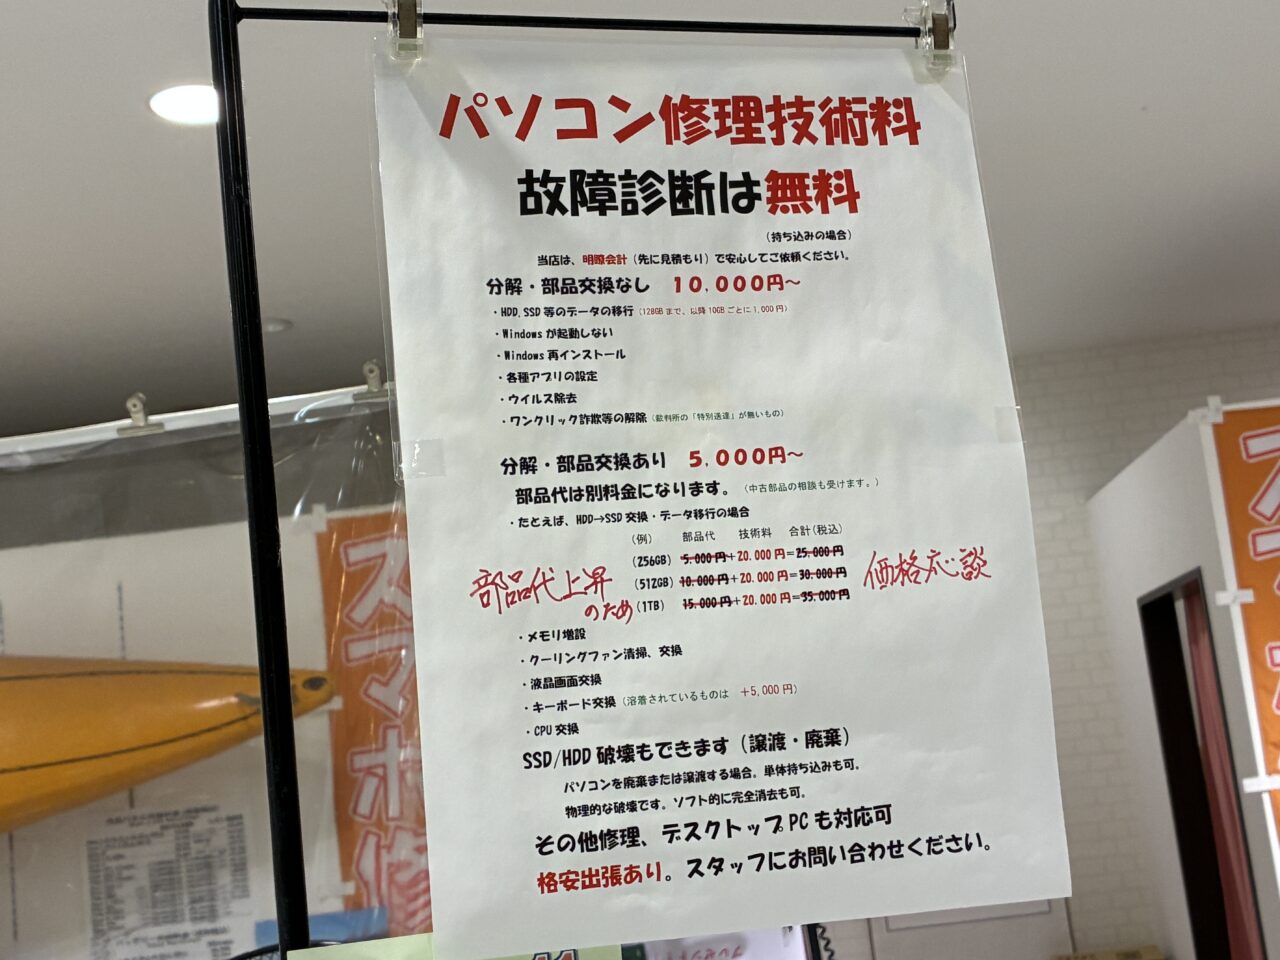 パソコン修理技術料
故障診断は無料
（持ち込みの場合）
当店は、明瞭会計（先に見積もり）で安心してご依頼ください。
分解・部品交換なし 10,000円～
・HDD,SSD 等のデータの移行（128GBまで、以降10GBごとに1,000円）
・Windowsが起動しない
・Windows 再インストール
・各種アプリの設定
・ウイルス除去
・ワンクリック詐欺等の解除（裁判所の「特別送達」が無いもの）
分解・部品交換あり 5,000円～
部品代は別料金になります。（中古部品の相談も受けます。）
・たとえば、HDD→SSD 交換・データ移行の場合
（例） 部品代 技術料 合計（税込）
(256GB) 5.000円+20.000円=25.000円
(512GB) 10.000円+20.000円=30.000円
(1TB) 15.000円+20.000円=35.000円
部品代上昇
のため
価格応談
・メモリ増設
・クーリングファン清掃、交換
・液晶画面交換
・キーボード交換（溶着されているものは +5,000円）
・CPU 交換
SSD/HDD 破壊もできます（譲渡・廃棄）
パソコンを廃棄または譲渡する場合。単体持ち込みも可。
物理的な破壊です。ソフト的に完全消去も可。
その他修理、デスクトップPCも対応可
格安出張あり。スタッフにお問い合わせください。
スマホ修